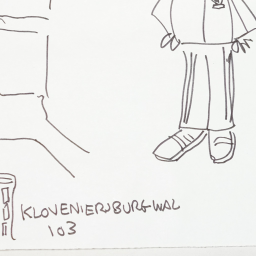 KLOVENIERSBURGWAL
103